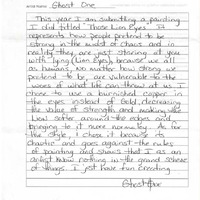 Artist Name: Ghost One
This year I am submitting a painting
I did titled "Those Lion Eyes". It
represents how people pretend to be
strong in the midst of chaos and in
reality they are just staring at you
with lying (Lion Eyes) because we all
as humans, no matter how strong we
pretend to be, are vulnerable to the
woes of what life can throw at us. I
chose to use a burnished copper in
the eyes instead of Gold, decreasing
the value of strength and making the
Lion softer around the edges and
bringing to it more normalcy. As for
the style, I chose it because its
chaotic and goes against the rules
of painting and shows that I as an
artist know nothing in the grand scheme
of things. I just have fun creating.
Ghost One